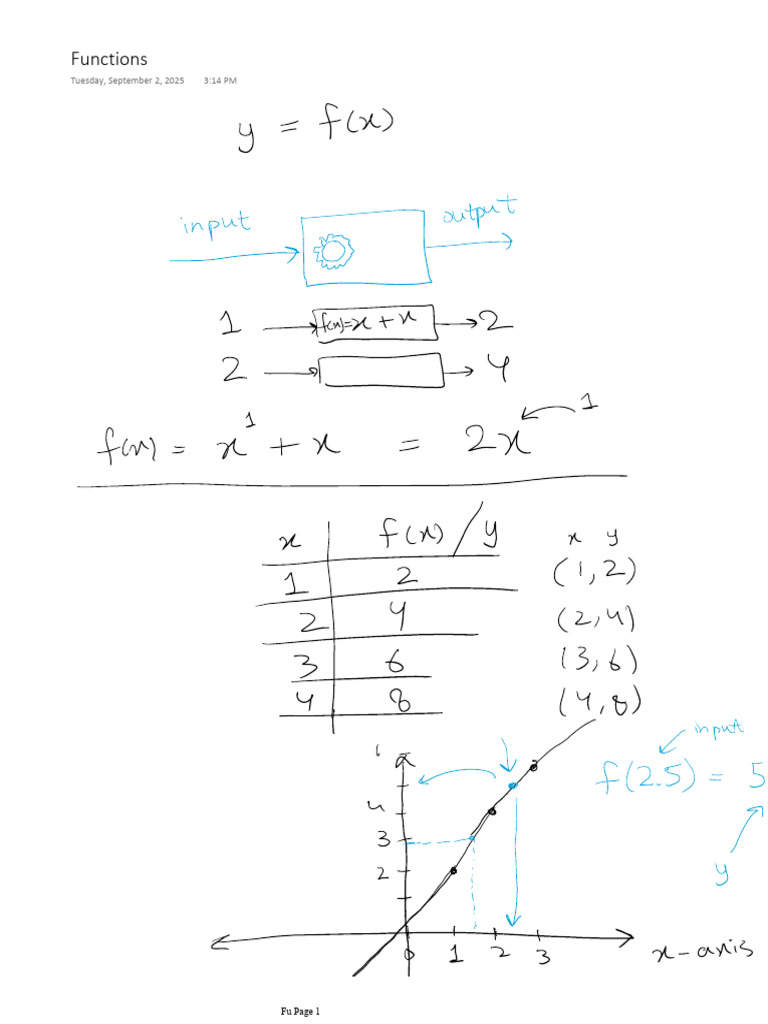 Functions
Tuesday, September 2, 2025 3:14 PM
y = f(x)
input output
1 f(x)=x+x 2
2 4
1
f(x) = x¹ + x = 2x
x f(x) / y x y
1 2 (1,2)
2 4 (2,4)
3 6 (3,6)
4 8 (4,8)
input
f(2.5) = 5
4
3
2
y
0 1 2 3 x-axis
Fu Page 1